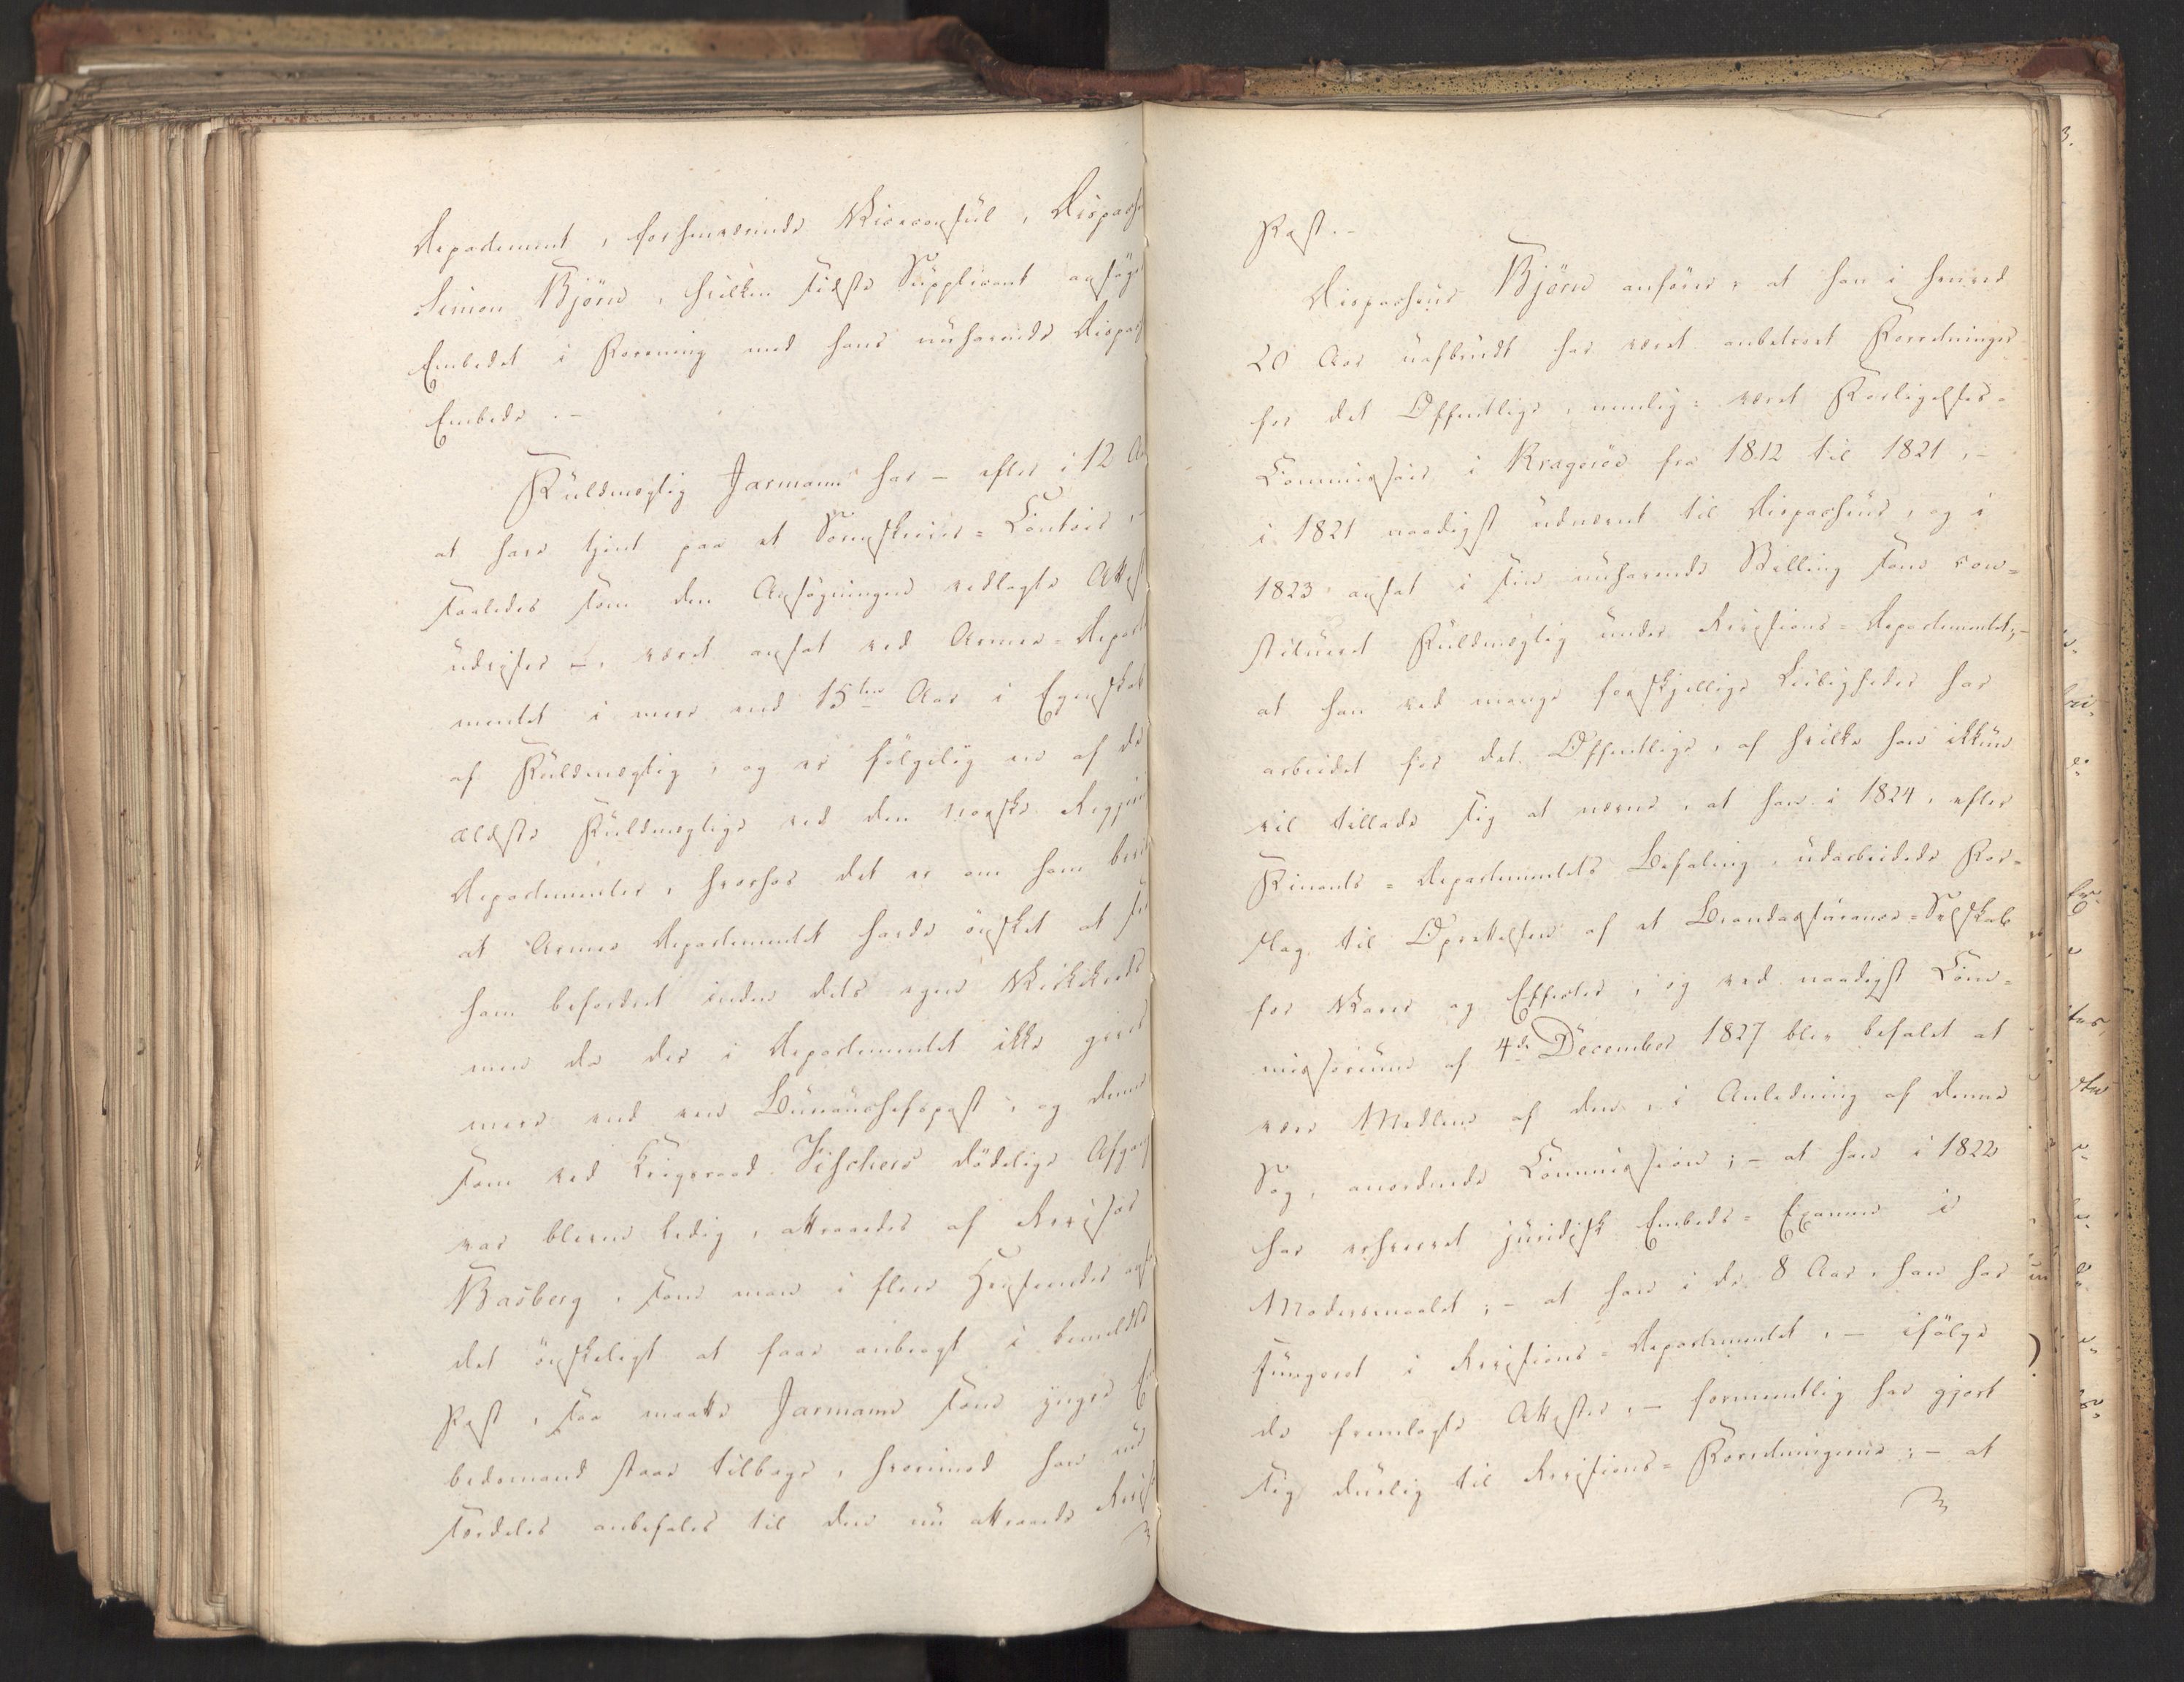 Departement, forhenværende Viceconsul, Dispach
Simon Bjørn, hvilken sidste Supplicant ansøge
Embedet i Forening med hans nuhavende Dispach
Embede. –
Fuldmægtig Jarmann har – efter i 12 Aa
at have tjent paa et Sorenskriver-Contoir,
saaledes som den Ansøgningen vedlagte Attest
udviser –, været ansat ved Armee-Departe
mentet i meer end 15ten Aar i Egenskab
af Fuldmægtig, og er følgelig en af de
ældste Fuldmægtige ved den norske Regjeri
Departementer, hvorhos det er om ham
at Armee Departementet havde ønsket at see
ham befordret inden dets egne
men da der i Departementet ikke gives
meer end een Büreauchefspost, og denne
som ved Krigsraad Vischers dødelige Afgang
var bleven ledig, attraaedes af Revisor
Basberg, som man i flere Henseender ansee
det ønskeligt at faae anbragt i bemeldte
Post, saa maatte Jarmann som yngre Em
bedsmand staae tilbage, hvorimod han nu
særdeles anbefales til den nu attraaede Revis
Post. –
Dispacheur Bjørn anfører, at han i henved
20 Aar uafbrudt har været anbetroet Forretninger
for det Offentlige, nemlig: været Forligelses-
Commissair i Kragerøe fra 1812 til 1821, –
i 1821 naadigst udnævnt til Dispacheur, og i
1823 ansat i sin nuhavende Stilling som con-
stitueret Fuldmægtig under Revisions-Departementet; –
at han ved mange forskjellige Leiligheder har
arbeidet for det Offentlige, af hvilke han ikkun
vil tillade sig at nævne, at han i 1824, efter
Finants-Departementets Befaling, udarbeidede For-
slag til Oprettelsen af et Brandassurance-Selskab
for Varer og Effecter, og ved naadigst Com-
missorium af 4de December 1827 blev befalet at
være Medlem af den, i Anledning af denne
Sag, anordnede Commission; – at han i 1822
har erhvervet juridisk Embeds-Examen i
Modersmaalet; – at han i de 8 Aar, han har
fungeret i Revisions-Departementet, – ifølge
de fremlagte Attester, – formentlig har gjort
sig duelig til Revisions-Forretningerne; – at